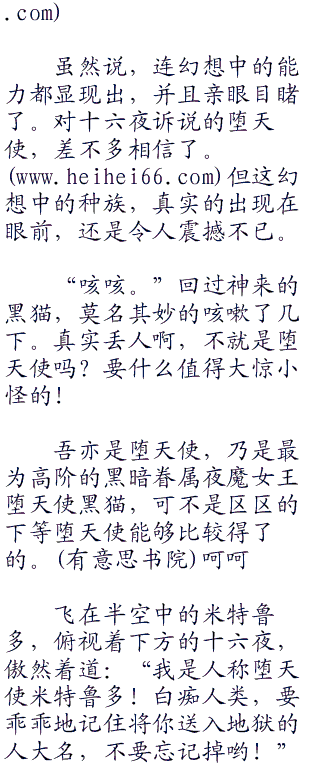 .com)
虽然说，连幻想中的能
力都显现出，并且亲眼目睹
了。对十六夜诉说的堕天
使，差不多相信了。
(www.heihei66.com)但这幻
想中的种族，真实的出现在
眼前，还是令人震撼不已。
“咳咳。”回过神来的
黑猫，莫名其妙的咳嗽了几
下。真实丢人啊，不就是堕
天使吗？要什么值得大惊小
怪的！
吾亦是堕天使，乃是最
为高阶的黑暗眷属夜魔女王
堕天使黑猫，可不是区区的
下等堕天使能够比较得了
的。(有意思书院)呵呵
飞在半空中的米特鲁
多，俯视着下方的十六夜，
傲然着道：“我是人称堕天
使米特鲁多！白痴人类，要
乖乖地记住将你送入地狱的
人大名，不要忘记掉哟！”